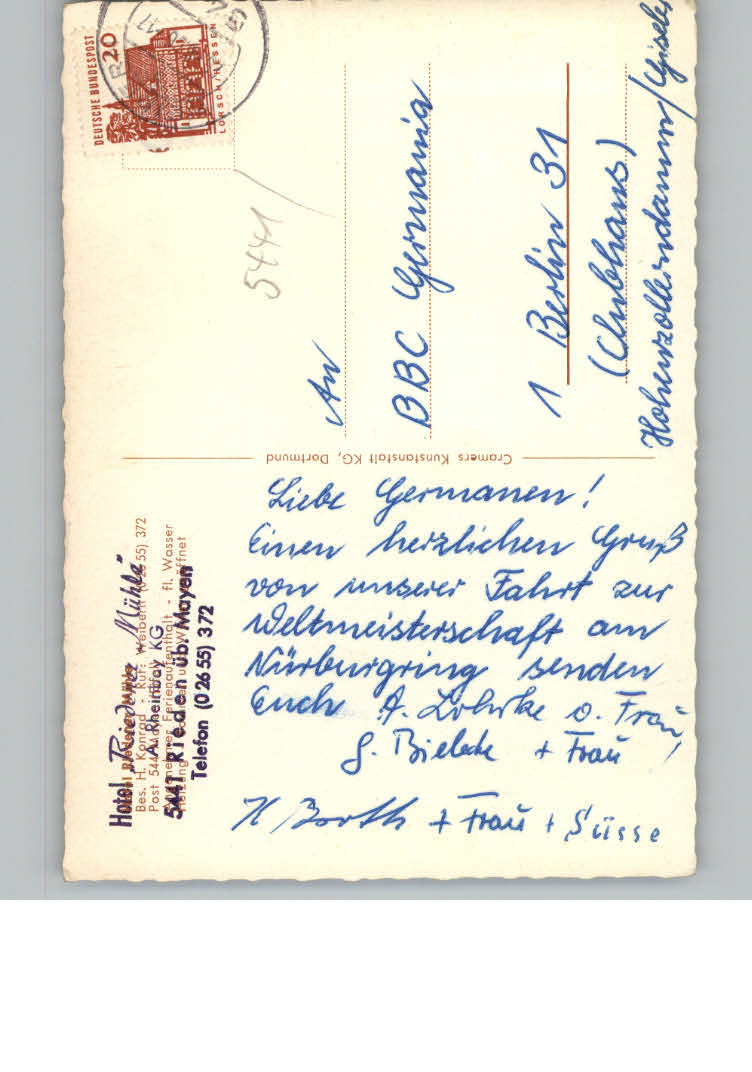 DEUTSCHE BUNDESPOST
20
LORSCH/HESSEN
17
5441
An
BBC Germania
1 Berlin 31
(Clubhaus)
Hohenzollerndamm/
Cramers Kunstanstalt KG, Dortmund
Hotel „Riedener Mühle"
A. Rheinbay KG
5441 Rieden üb. Mayen
Telefon (0 26 55) 3 72
Bes. H. Konrad - Ruf: Weibern (0 26 55) 372
Post 544
Ferienaufenthalt - fl. Wasser
Liebe Germanen!
Einen herzlichen Gruß
von unserer Fahrt zur
Weltmeisterschaft am
Nürburgring senden
Euch A. u. Frau,
+ Frau
+ Frau + Süsse